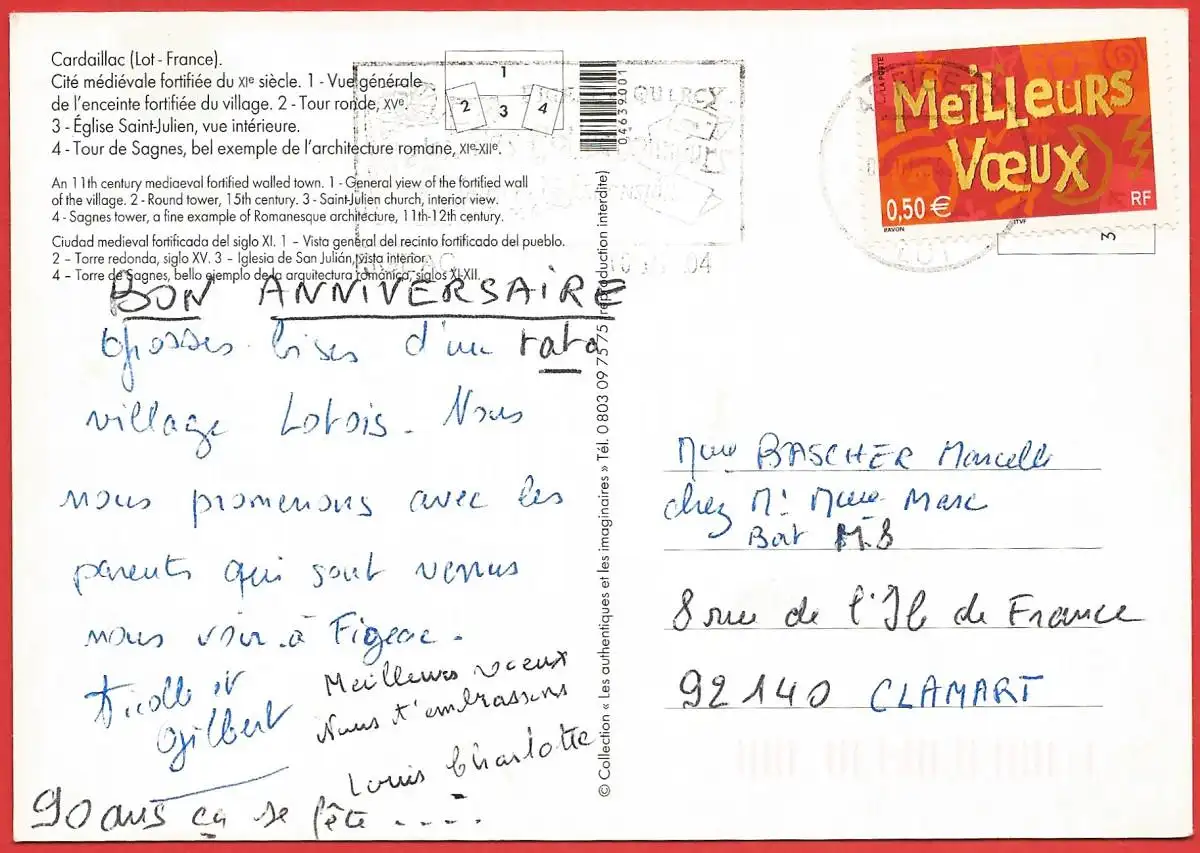 Cardaillac (Lot - France).
Cité médiévale fortifiée du XIe siècle. 1 - Vue générale
de l'enceinte fortifiée du village. 2 - Tour ronde, XVe.
3 - Église Saint-Julien, vue intérieure.
4 - Tour de Sagnes, bel exemple de l'architecture romane, XIe-XIIe.
An 11th century mediaeval fortified walled town. 1 - General view of the fortified wall
of the village. 2 - Round tower, 15th century. 3 - Saint-Julien church, interior view.
4 - Sagnes tower, a fine example of Romanesque architecture, 11th-12th century.
Ciudad medieval fortificada del siglo XI. 1 – Vista general del recinto fortificado del pueblo.
2 – Torre redonda, siglo XV. 3 – Iglesia de San Julián, vista interior.
4 – Torre de Sagnes, bello ejemplo de la arquitectura románica, siglos XI-XII.
1
2 3 4
04639001
QUERCY
04
BON ANNIVERSAIRE
Grosses bises d'un
village Lotois. Nous
nous promenons avec les
parents qui sont venus
nous voir à Figeac.
Gilbert
Meilleurs voeux
Nous t'embrassons
Louis Charlotte
90 ans ça se fête ....
© Collection « Les authentiques et les imaginaires » Tél. 0 803 09 75 75 (reproduction interdite)
LA POSTE
MEILLEURS
VŒUX
0,50 €
RF
ITVF
3
Mme BASCHER Marcelle
chez Mr Mme Marc
Bat M8
8 rue de l'Ile de France
92140 CLAMART